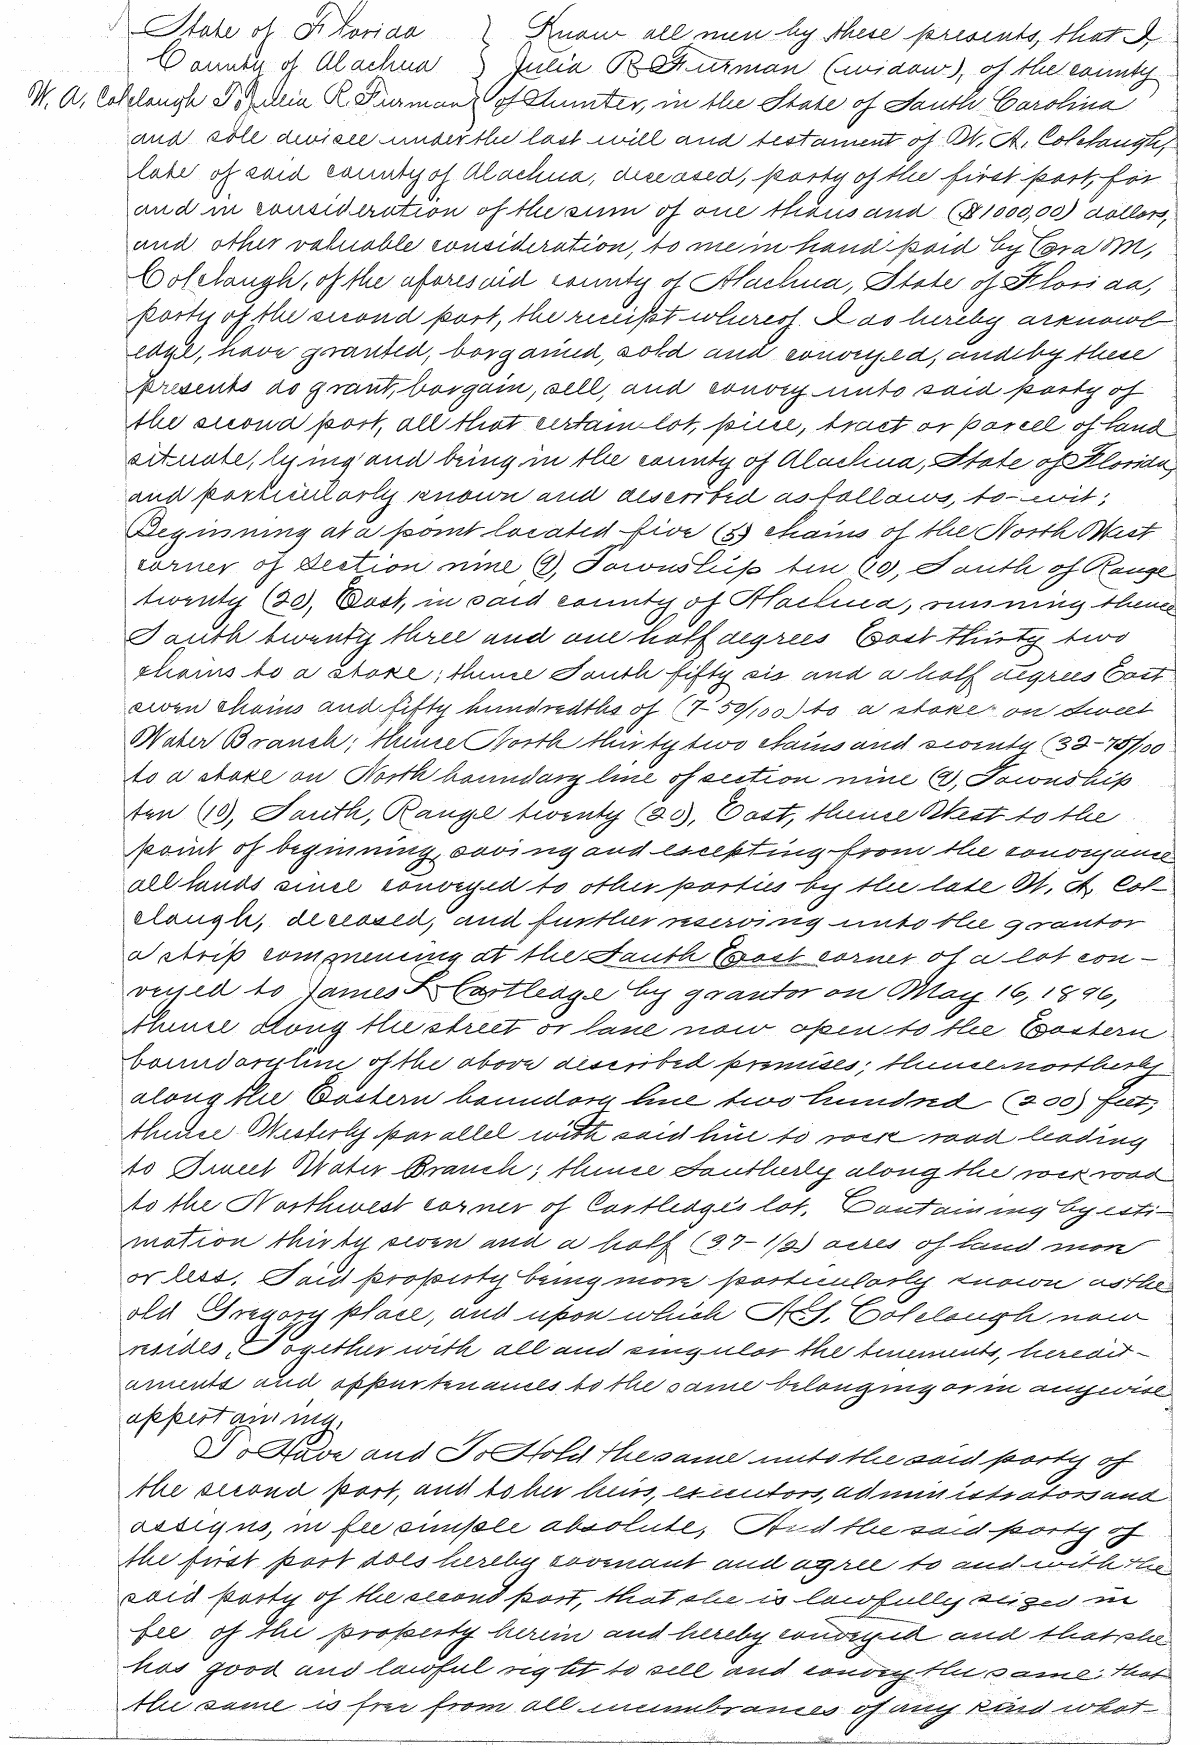 State of Florida } Know all men by these presents, that I,
County of Alachua } Julia R Furman (widow), of the county
W. A. Colclough To Julia R Furman } of Sumter, in the State of South Carolina
and sole devisee under the last will and testament of W. A. Colclough,
late of said county of Alachua, deceased, party of the first part, for
and in consideration of the sum of one thousand ($1000,00) dollars,
and other valuable consideration, to me in hand paid by Cora M.
Colclough, of the aforesaid county of Alachua, State of Florida,
party of the second part, the receipt whereof I do hereby acknowl
edge, have granted, bargained, sold and conveyed, and by these
presents do grant, bargain, sell, and convey unto said party of
the second part, all that certain lot, piece, tract or parcel of land
situate, lying and being in the county of Alachua, State of Florida,
and particularly known and described as follows, to-wit;
Beginning at a point located five (5) chains of the North West
corner of Section nine (9), Township ten (10), South of Range
twenty (20), East, in said county of Alachua, running thence
South twenty three and one half degrees East thirty two
chains to a stake; thence South fifty six and a half degrees East
seven chains and fifty hundredths of (7-50/100) to a stake on Sweet
Water Branch; thence North thirty two chains and seventy (32-75/100
to a stake on North boundary line of section nine (9), Township
ten (10), South, Range twenty (20), East, thence West to the
point of beginning, saving and excepting from the conveyance
all lands since conveyed to other parties by the late W. A. Col-
clough, deceased, and further reserving unto the grantor
a strip commencing at the South East corner of a lot con-
veyed to James Cartledge by grantor on May 16, 1896,
thence along the street or lane now open to the Eastern
boundary line of the above described premises; thence northerly
along the Eastern boundary line two hundred (200) feet,
thence Westerly parallel with said line to rock road leading
to Sweet Water Branch; thence Southerly along the rock road
to the Northwest corner of Cartledge's lot. Containing by esti-
mation thirty seven and a half (37-1/2) acres of land more
or less. Said property being more particularly known as the
old Gregory place, and upon which Colclough now
resides. Together with all and singular the tenements, heredit-
aments and appurtenances to the same belonging or in anywise
appertaining.
To Have and To Hold the same unto the said party of
the second part, and to her heirs, executors, administrators and
assigns, in fee simple absolute, And the said party of
the first part does hereby covenant and agree to and with the
said party of the second part, that she is lawfully seized in
fee of the property herein and hereby conveyed and that she
has good and lawful right to sell and convey the same; that
the same is free from all incumbrances of any kind what-